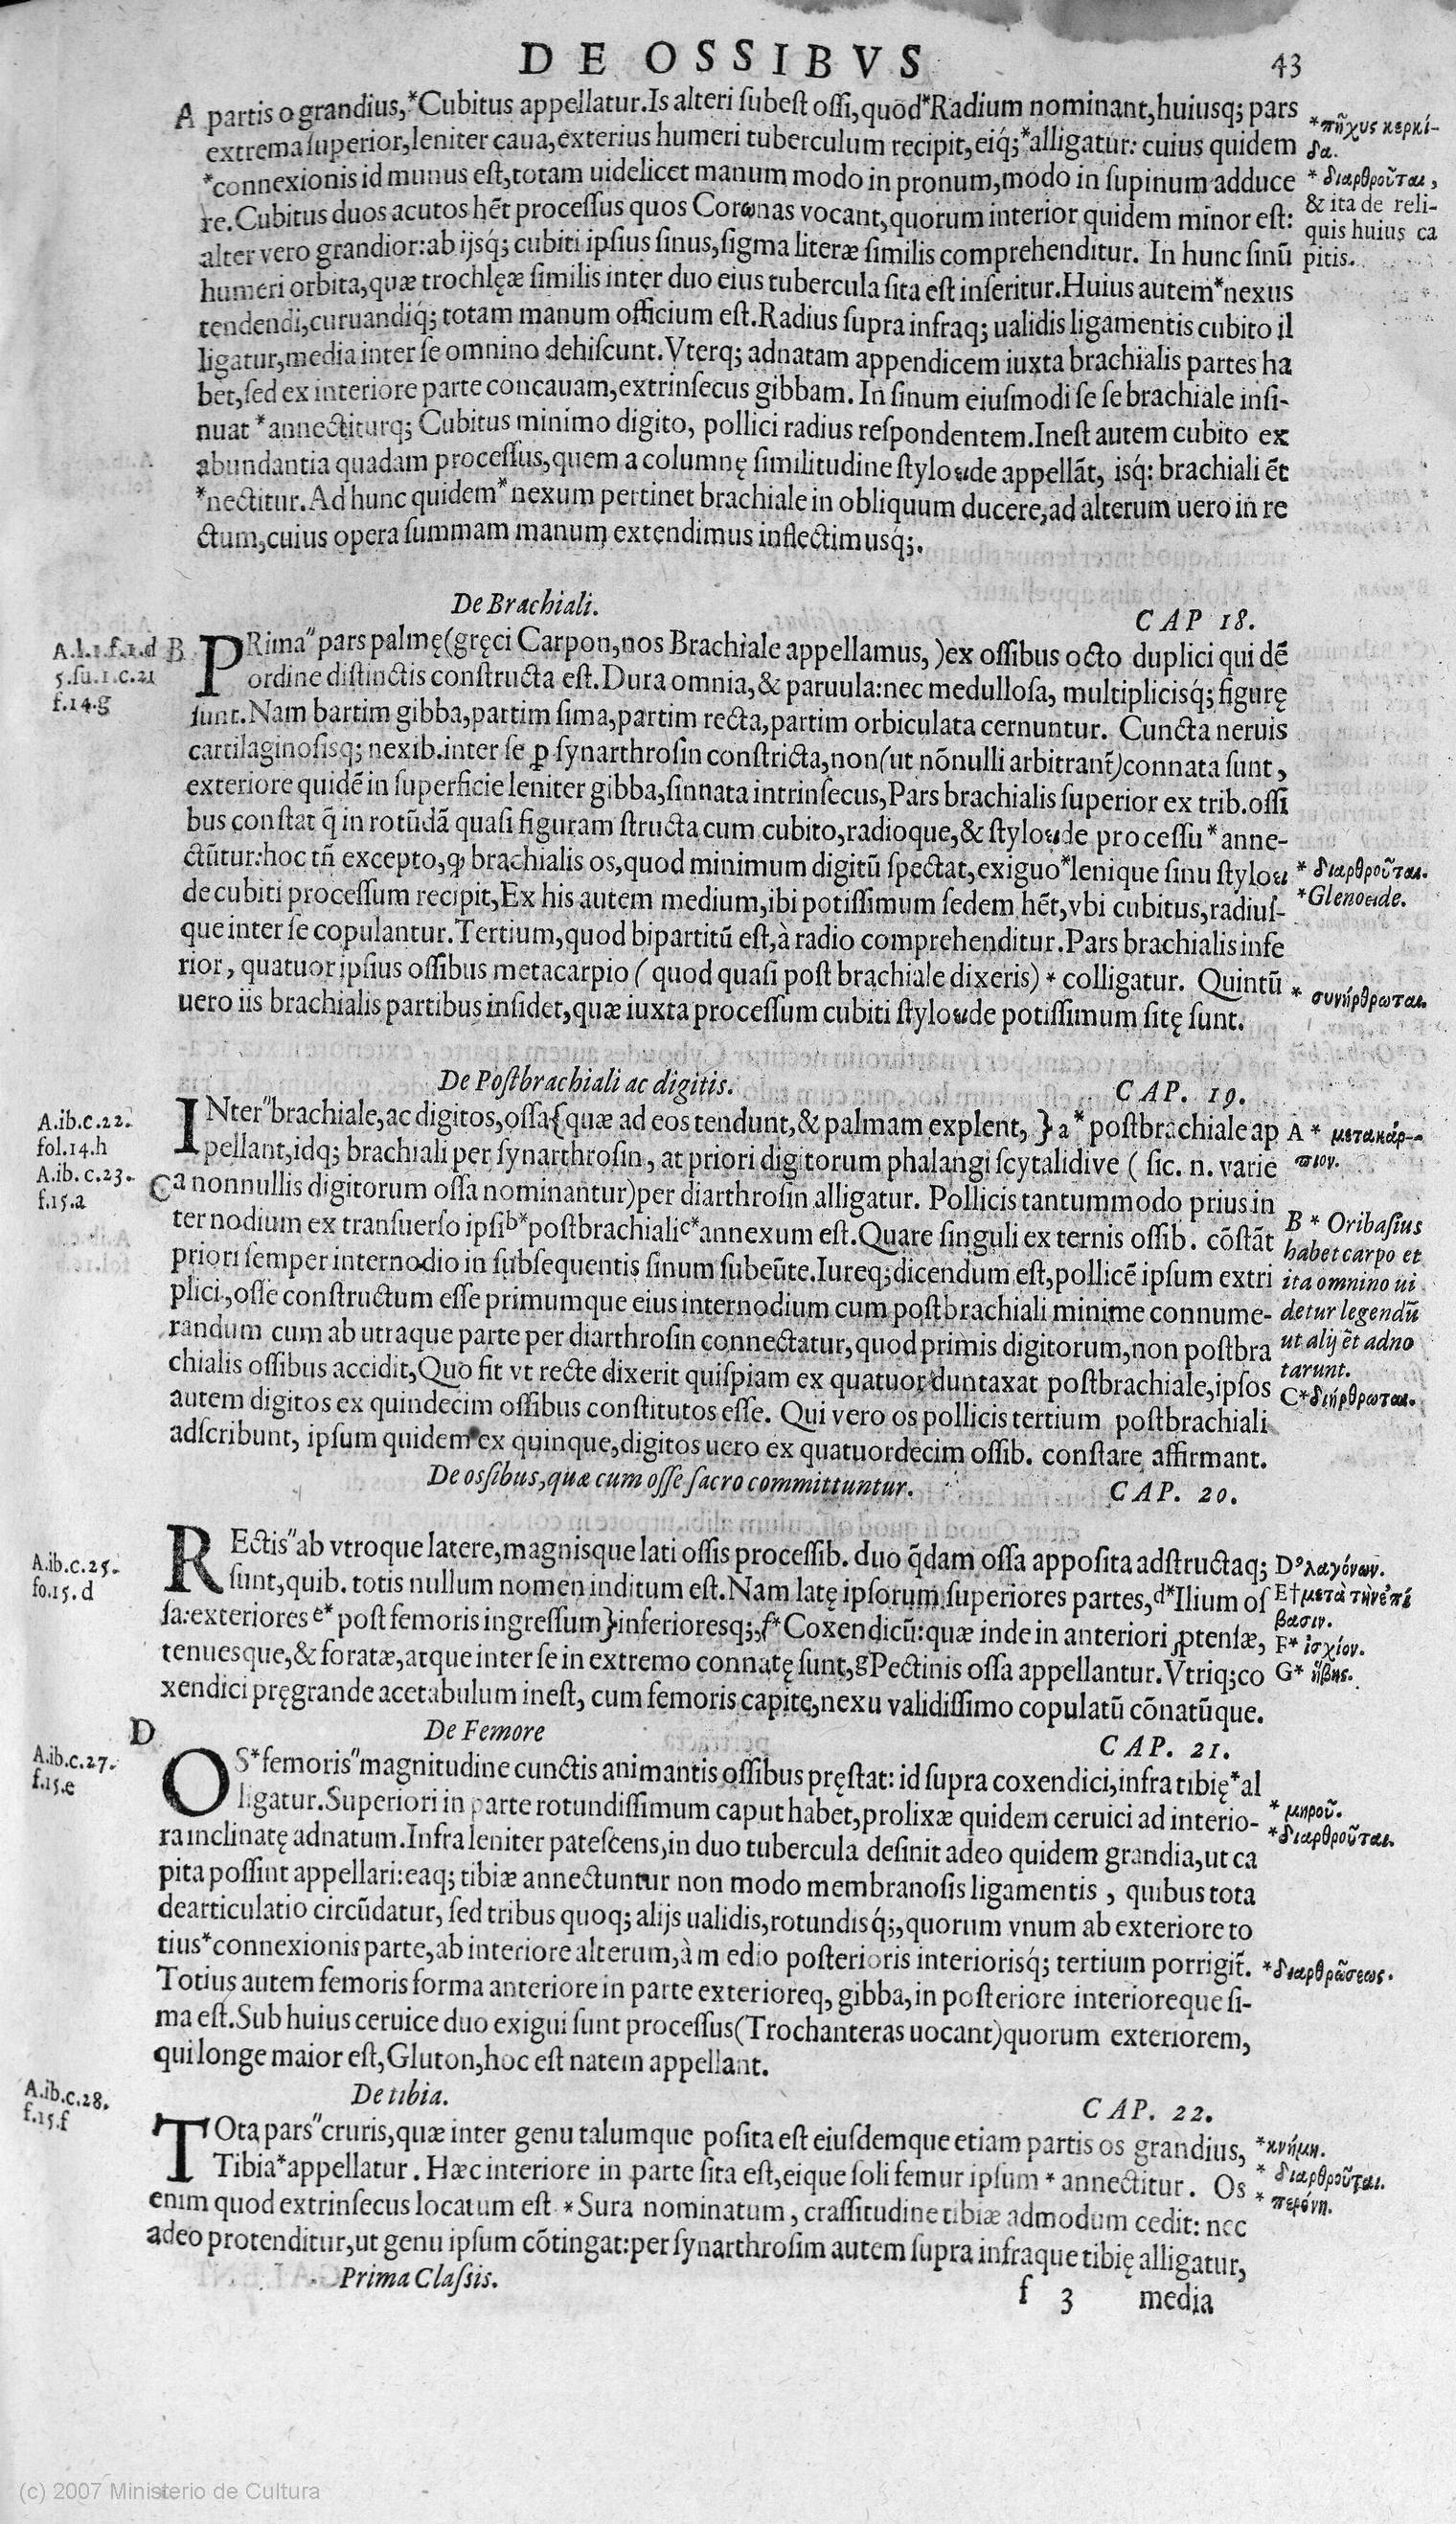 DE OSSIBVS 43
A partis o grandius,*Cubitus appellatur.Is alteri subest ossi,quōd*Radium nominant,huiusq; pars
extrema superior,leniter caua,exterius humeri tuberculum recipit,eiq́;*alligatur: cuius quidem
*connexionis id munus est,totam uidelicet manum modo in pronum,modo in supinum adduce
re.Cubitus duos acutos hēt processus quos Corωnas vocant,quorum interior quidem minor est:
alter vero grandior:ab ijsq́; cubiti ipsius sinus,sigma literæ similis comprehenditur. In hunc sinū
humeri orbita,quæ trochlęæ similis inter duo eius tubercula sita est inseritur.Huius autem*nexus
tendendi,curuandiq́; totam manum officium est.Radius supra infraq; ualidis ligamentis cubito il
ligatur,media inter se omnino dehiscunt.Vterq; adnatam appendicem iuxta brachialis partes ha
bet,sed ex interiore parte concauam,extrinsecus gibbam. In sinum eiusmodi se se brachiale insi-
nuat *annectiturq; Cubitus minimo digito, pollici radius respondentem.Inest autem cubito ex
abundantia quadam processus,quem a columnę similitudine stylode appellāt, isq́: brachiali ēt
*nectitur.Ad hunc quidem*nexum pertinet brachiale in obliquum ducere,ad alterum uero in re
ctum,cuius opera summam manum extendimus inflectimusq́;.
*πῆχυς κερκί-
δα.
* διαρθροῦται,
& ita de reli-
quis huius ca
pitis.
De Brachiali. CAP 18.
A.l.1.f.1.d B
5.su.1.c.21
f.14.g
PRima" pars palmę(gręci Carpon,nos Brachiale appellamus, )ex ossibus octo duplici qui dē
ordine distinctis constructa est.Dura omnia,& paruula:nec medullosa, multiplicisq́; figurę
sunt.Nam bartim gibba,partim sima,partim recta,partim orbiculata cernuntur. Cuncta neruis
cartilaginosisq; nexib.inter se ꝑ synarthrosin constricta,non(ut nōnulli arbitrant̄)connata sunt,
exteriore quidē in superficie leniter gibba,sinnata intrinsecus,Pars brachialis superior ex trib.ossi
bus constat q̄ in rotūdā quasi figuram structa cum cubito,radioque,& stylode processu*anne-
ctūtur:hoc tn̄ excepto,ꝙ brachialis os,quod minimum digitū spectat,exiguo*lenique sinu stylo
de cubiti processum recipit,Ex his autem medium,ibi potissimum sedem hēt,vbi cubitus,radius-
que inter se copulantur.Tertium,quod bipartitū est,à radio comprehenditur.Pars brachialis infe
rior, quatuor ipsius ossibus metacarpio ( quod quasi post brachiale dixeris) * colligatur. Quintū
uero iis brachialis partibus insidet,quæ iuxta processum cubiti stylode potissimum sitę sunt.
* διαρθροῦται.
*Glenode.
* συνήρθρωται.
De Postbrachiali ac digitis. CAP. 19.
A.ib.c.22.
fol.14.h
A.ib.c.23.
f.15.a
C
INter"brachiale,ac digitos,ossa{quæ ad eos tendunt,& palmam explent, } a*postbrachiale ap
pellant,idq; brachiali per synarthrosin, at priori digitorum phalangi scytalidive ( sic. n. varie
a nonnullis digitorum ossa nominantur)per diarthrosin alligatur. Pollicis tantummodo prius in
ternodium ex transuerso ipsi b*postbrachiali c*annexum est.Quare singuli ex ternis ossib. cōstāt
priori semper internodio in subsequentis sinum subeūte.Iureq;dicendum est,pollicē ipsum extri
plici.,osse constructum esse primumque eius internodium cum postbrachiali minime connume-
randum cum ab utraque parte per diarthrosin connectatur,quod primis digitorum,non postbra
chialis ossibus accidit,Quo fit vt recte dixerit quispiam ex quatuor duntaxat postbrachiale,ipsos
autem digitos ex quindecim ossibus constitutos esse. Qui vero os pollicis tertium postbrachiali
adscribunt, ipsum quidem ex quinque,digitos uero ex quatuordecim ossib. constare affirmant.
A * μετακάρ-
πιον.
B * Oribasius
habet carpo et
ita omnino ui
detur legendū
ut alij ēt adno
tarunt.
C*διήρθρωται.
De ossibus,quæ cum osse sacro committuntur. CAP. 20.
A.ib.c.25.
fo.15.d
REctis"ab vtroque latere,magnisque lati ossis processib. duo q̄dam ossa apposita adstructaq;
sunt,quib. totis nullum nomen inditum est.Nam latę ipsorum superiores partes,d*Ilium os
sa:exteriores e* post femoris ingressum}inferioresq;,f*Coxendicū:quæ inde in anteriori ꝓtensæ,
tenuesque,& foratæ,atque inter se in extremo connatę sunt,gPectinis ossa appellantur.Vtriq;co
xendici pręgrande acetabulum inest, cum femoris capite,nexu validissimo copulatū cōnatūque.
D*λαγόνων.
E†μετὰ τὴν ἐπί
βασιν.
F* ἰσχίον.
G* ἥβης.
D
De Femore CAP. 21.
A.ib.c.27.
f.15.e
OS*femoris"magnitudine cunctis animantis ossibus pręstat: id supra coxendici,infra tibię*al
ligatur.Superiori in parte rotundissimum caput habet,prolixæ quidem ceruici ad interio-
ra inclinatę adnatum.Infra leniter patescens,in duo tubercula desinit adeo quidem grandia,ut ca
pita possint appellari:eaq; tibiæ annectuntur non modo membranosis ligamentis , quibus tota
dearticulatio circūdatur, sed tribus quoq; alijs ualidis,rotundisq́;,quorum vnum ab exteriore to
tius*connexionis parte,ab interiore alterum,à m edio posterioris interiorisq́; tertium porrigit̄.
Totius autem femoris forma anteriore in parte exterioreq, gibba,in posteriore interioreque si-
ma est.Sub huius ceruice duo exigui sunt processus(Trochanteras uocant)quorum exteriorem,
qui longe maior est,Gluton,hoc est natem appellant.
* μηροῦ.
*διαρθροῦται.
*διαρθρώσεως.
De tibia. CAP. 22.
A.ib.c.28.
f.15.f
TOta pars"cruris,quæ inter genu talumque posita est eiusdemque etiam partis os grandius,
Tibia*appellatur. Hæc interiore in parte sita est,eique soli femur ipsum * annectitur. Os
enim quod extrinsecus locatum est *Sura nominatum, crassitudine tibiæ admodum cedit: nec
adeo protenditur,ut genu ipsum cōtingat:per synarthrosim autem supra infraque tibię alligatur,
*κνήμη.
* διαρθροῦται.
* περόνη.
Prima Classis. f 3 media
(c) 2007 Ministerio de Cultura